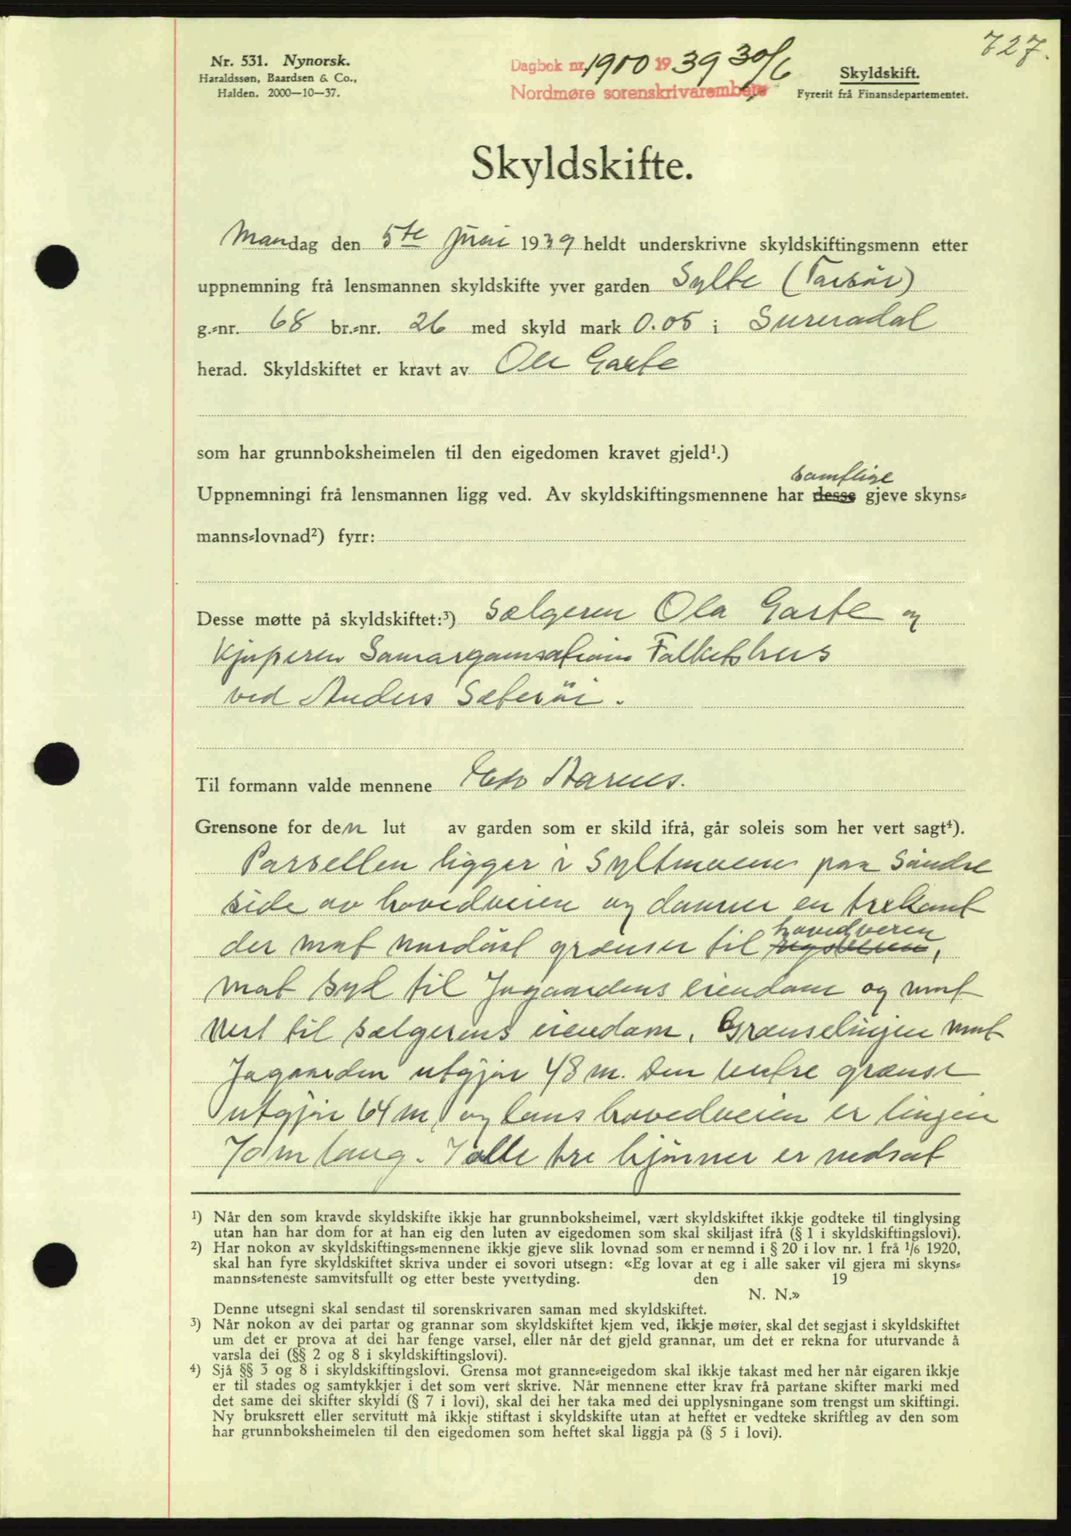 727.
Nr. 531. Nynorsk.
Haraldssøn, Baardsen & Co.,
Halden. 2000—10—37.
Dagbok nr. 1900 1939 30/6
Nordmøre sorenskrivarembete
Skyldskift.
Fyrerit frå Finansdepartementet.
Skyldskifte.
Mandag den 5te juni 1939 heldt underskrivne skyldskiftingsmenn etter
uppnemning frå lensmannen skyldskifte yver garden Sylte
g.-nr. 68 br.-nr. 26 med skyld mark 0.05 i Surnadal
herad. Skyldskiftet er kravt av Ola Garte
som har grunnboksheimelen til den eigedomen kravet gjeld¹.)
samtlige
Uppnemningi frå lensmannen ligg ved. Av skyldskiftingsmennene har desse gjeve skyns-
manns-lovnad²) fyrr:
Desse møtte på skyldskiftet:³) Sælgeren Ola Garte og
kjøperen Samorganisations Folkets hus
ved Anders Sæterøi.
Til formann valde mennene
Grensone for den lut av garden som er skild ifrå, går soleis som her vert sagt⁴).
Parsellen ligger i Syltmoene paa söndre
side av hovedveien og danner en trekant
der mot nordöst grænser til hovedveien,
mot syd til Jogaardens eiendom og mot
vest til sælgerens eiendom. Grænselinjen mot
Jogaarden utgjör 48 m. den vestre grænse
utgjör 64 m, og langs hovedveien er linjen
70 m lang. I alle tre hjörner er nedsat
¹) Når den som kravde skyldskifte ikkje har grunnboksheimel, vært skyldskiftet ikkje godteke til tinglysing
utan han har dom for at han eig den luten av eigedomen som skal skiljast ifrå (§ 1 i skyldskiftingslovi).
²) Har nokon av skyldskiftings-mennene ikkje gjeve slik lovnad som er nemnd i § 20 i lov nr. 1 frå 1/6 1920,
skal han fyre skyldskiftet skriva under ei sovori utsegn: «Eg lovar at eg i alle saker vil gjera mi skyns-
manns-teneste samvitsfullt og etter beste yvertyding. den 19
N. N.»
Denne utsegni skal sendast til sorenskrivaren saman med skyldskiftet.
³) Når nokon av dei partar og grannar som skyldskiftet kjem ved, ikkje møter, skal det segjast i skyldskiftet
um det er prova at dei har fenge varsel, eller når det gjeld grannar, um det er rekna for uturvande å
varsla dei (§§ 2 og 8 i skyldskiftingslovi).
⁴) Sjå §§ 3 og 8 i skyldskiftingslovi. Grensa mot granne-eigedom skal ikkje takast med her når eigaren ikkje
er til stades og samtykkjer i det som vert skrive. Når mennene etter krav frå partane skifter marki med
det same dei skifter skyldi (§ 7 i lovi), skal dei her taka med dei upplysningane som trengst um skiftingi.
Ny bruksrett eller servitutt må ikkje stiftast i skyldskifte utan at heftet er vedteke skriftleg av den som
har grunnboksheimelen til den eigedomen som heftet skal liggja på (§ 5 i lovi).